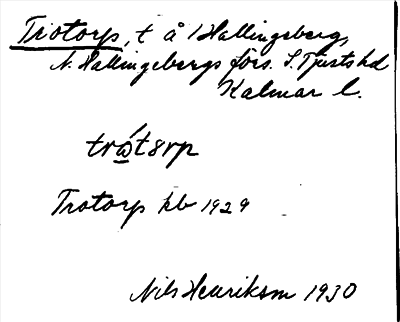 Trotorp, t å Hallingeberg,
N. Hallingebergs förs. S. Tjusts hd
Kalmar l.
trώt8rp
Trotorp kb 1929
Nils Henrikson 1930